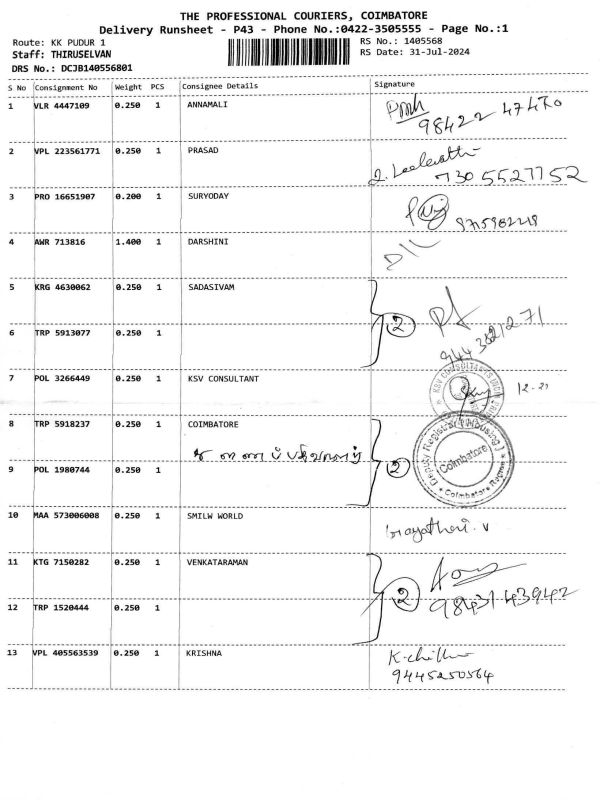 THE PROFESSIONAL COURIERS, COIMBATORE
Delivery Runsheet - P43 - Phone No.:0422-3505555 - Page No.:1
Route: KK PUDUR 1
RS No.: 1405568
Staff: THIRUSELVAN
RS Date: 31-Jul-2024
DRS No.: DCJB140556801
S No Consignment No Weight PCS Consignee Details Signature
1 VLR 4447109 0.250 1 ANNAMALI
98422 47470
2 VPL 223561771 0.250 1 PRASAD
7305527752
3 PRO 16651907 0.200 1 SURYODAY
4 AWR 713816 1.400 1 DARSHINI
5 KRG 4630062 0.250 1 SADASIVAM
2
6 TRP 5913077 0.250 1
7 POL 3266449 0.250 1 KSV CONSULTANT
KSV CONSULTANTS
12.21
8 TRP 5918237 0.250 1 COIMBATORE
Deputy Registrar (Housing)
Coimbatore
Coimbatore Region
9 POL 1980744 0.250 1
2
10 MAA 573006008 0.250 1 SMILW WORLD
Gayatheri. v
11 KTG 7150282 0.250 1 VENKATARAMAN
2
98431 43942
12 TRP 1520444 0.250 1
13 VPL 405563539 0.250 1 KRISHNA
9445250564